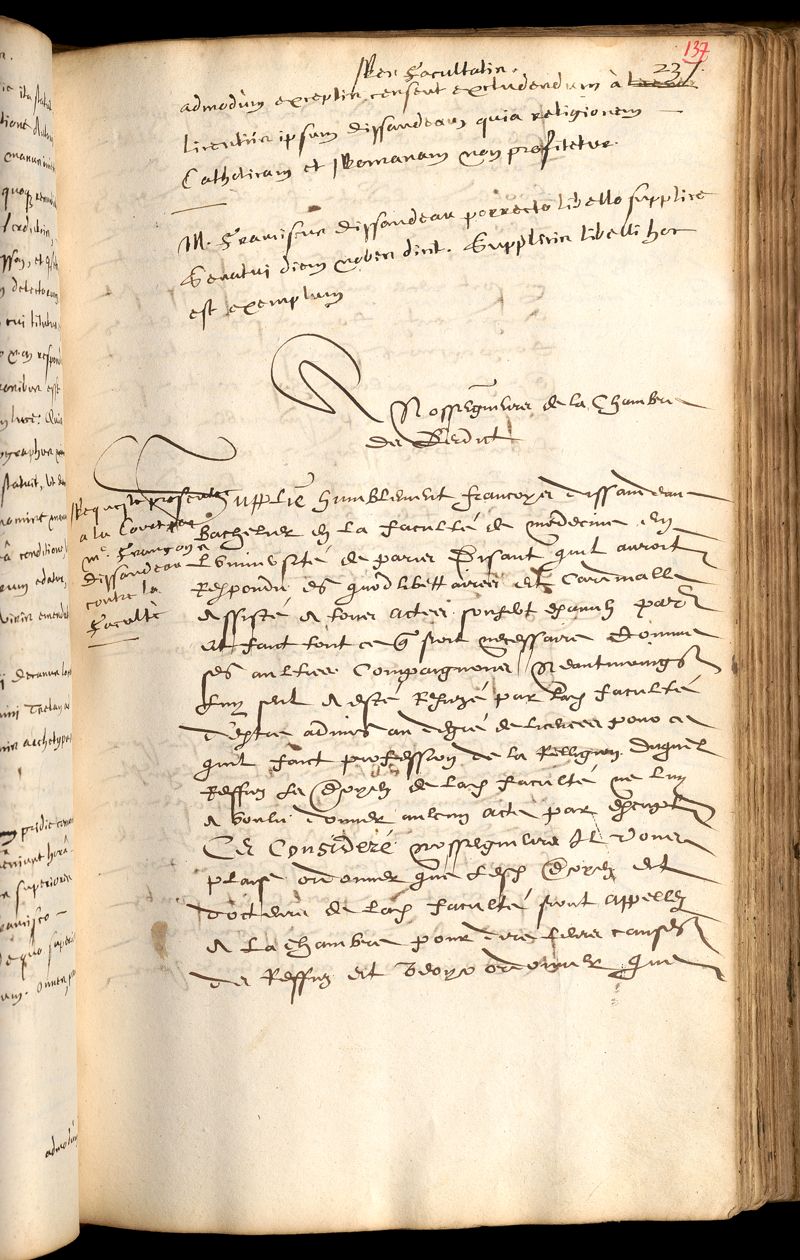 137
237.
Res Facultatis.
admodùm exceptis censent excludendum à
licentiis ipsum dissandeau, quia religionem
Catholicam et Romanam non profitetur.
M. Franciscus dissandeau porrecto libello supplice
Senatui diem nobis dicit. Supplicis libelli hoc
est exemplum
A Nosseigneurs de la Chambre
de l'Eedict
Requeste presentée
a la Court par
me. François
dissandeau
contre la
Faculté
Supplie humblement françoys dissandeau
Bachelier en la faculté de medecine en
Luniversité de paris Disant quil auroit
Respondu es quodlibettaires et Cardinalle
Assisté a tous actes souffert examen par
Et faict tout ce q̃ seroit necessaire comme
ses aultres Compaignons Neantmoings
luy seul a esté Refuzé par lad faculté
d'estre admis au degré de licence pour ce
quil faict profession de la Relligion Duquel
Reffuz le Doyen de lad faculté ne luy
a voulu donner aulcun acte par escript
Ce Consideré nosseigneurs Il vous
plaise ordonner que lesd Doyen et
docteurs de lad faculté seront appellez
a la chambre pour dire leurs causes
de Reffuz et ordonner que